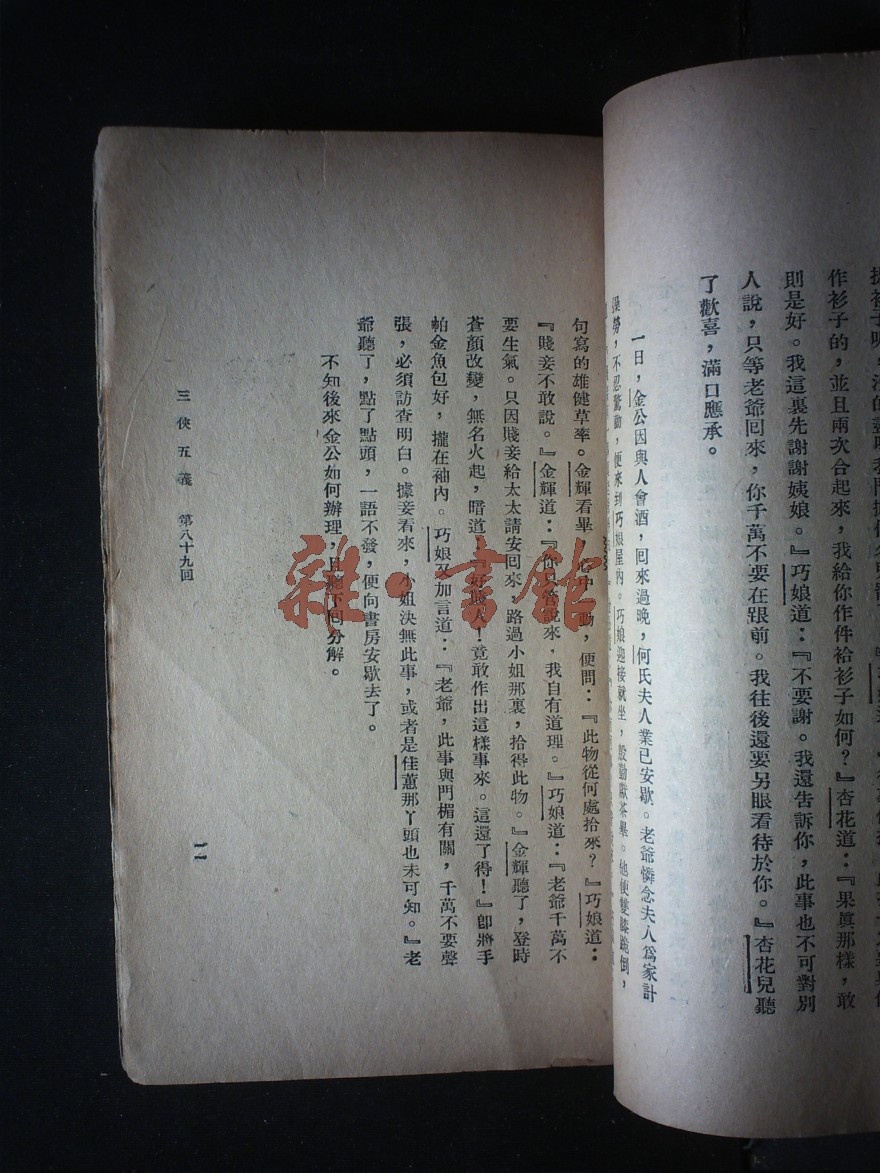 作衫子的，並且兩次合起來，我給你作件袷衫子如何？』杏花道：『果眞那樣，敢
則是好。我這裏先謝謝姨娘。』巧娘道：『不要謝。我還告訴你，此事也不可對別
人說，只等老爺回來，你千萬不要在跟前。我往後還要另眼看待於你。』杏花兒聽
了歡喜，滿口應承。
一日，金公因與人會酒，回來過晚，何氏夫人業已安歇。老爺憐念夫人爲家計
操勞，不忍驚動，便來到巧娘屋內。巧娘迎接就坐，殷勤獻茶畢。他便雙膝跪倒，
『賤妾
句寫的雄健草率。金輝看畢，心中一動，便問：『此物從何處拾來？』巧娘道：
『賤妾不敢說。』金輝道：『你只管說來，我自有道理。』巧娘道：『老爺千萬不
要生氣。只因賤妾給太太請安回來，路過小姐那裏，拾得此物。』金輝聽了，登時
蒼顏改變，無名火起，暗道：『好賤人！竟敢作出這樣事來。這還了得！』卽將手
帕金魚包好，攏在袖內。巧娘又加言道：『老爺，此事與門楣有關，千萬不要聲
張，必須訪查明白。據妾看來，小姐決無此事，或者是佳蕙那丫頭也未可知。』老
爺聽了，點了點頭，一語不發，便向書房安歇去了。
不知後來金公如何辦理，且聽下回分解。
三俠五義 第八十九回
一一
雜·書館